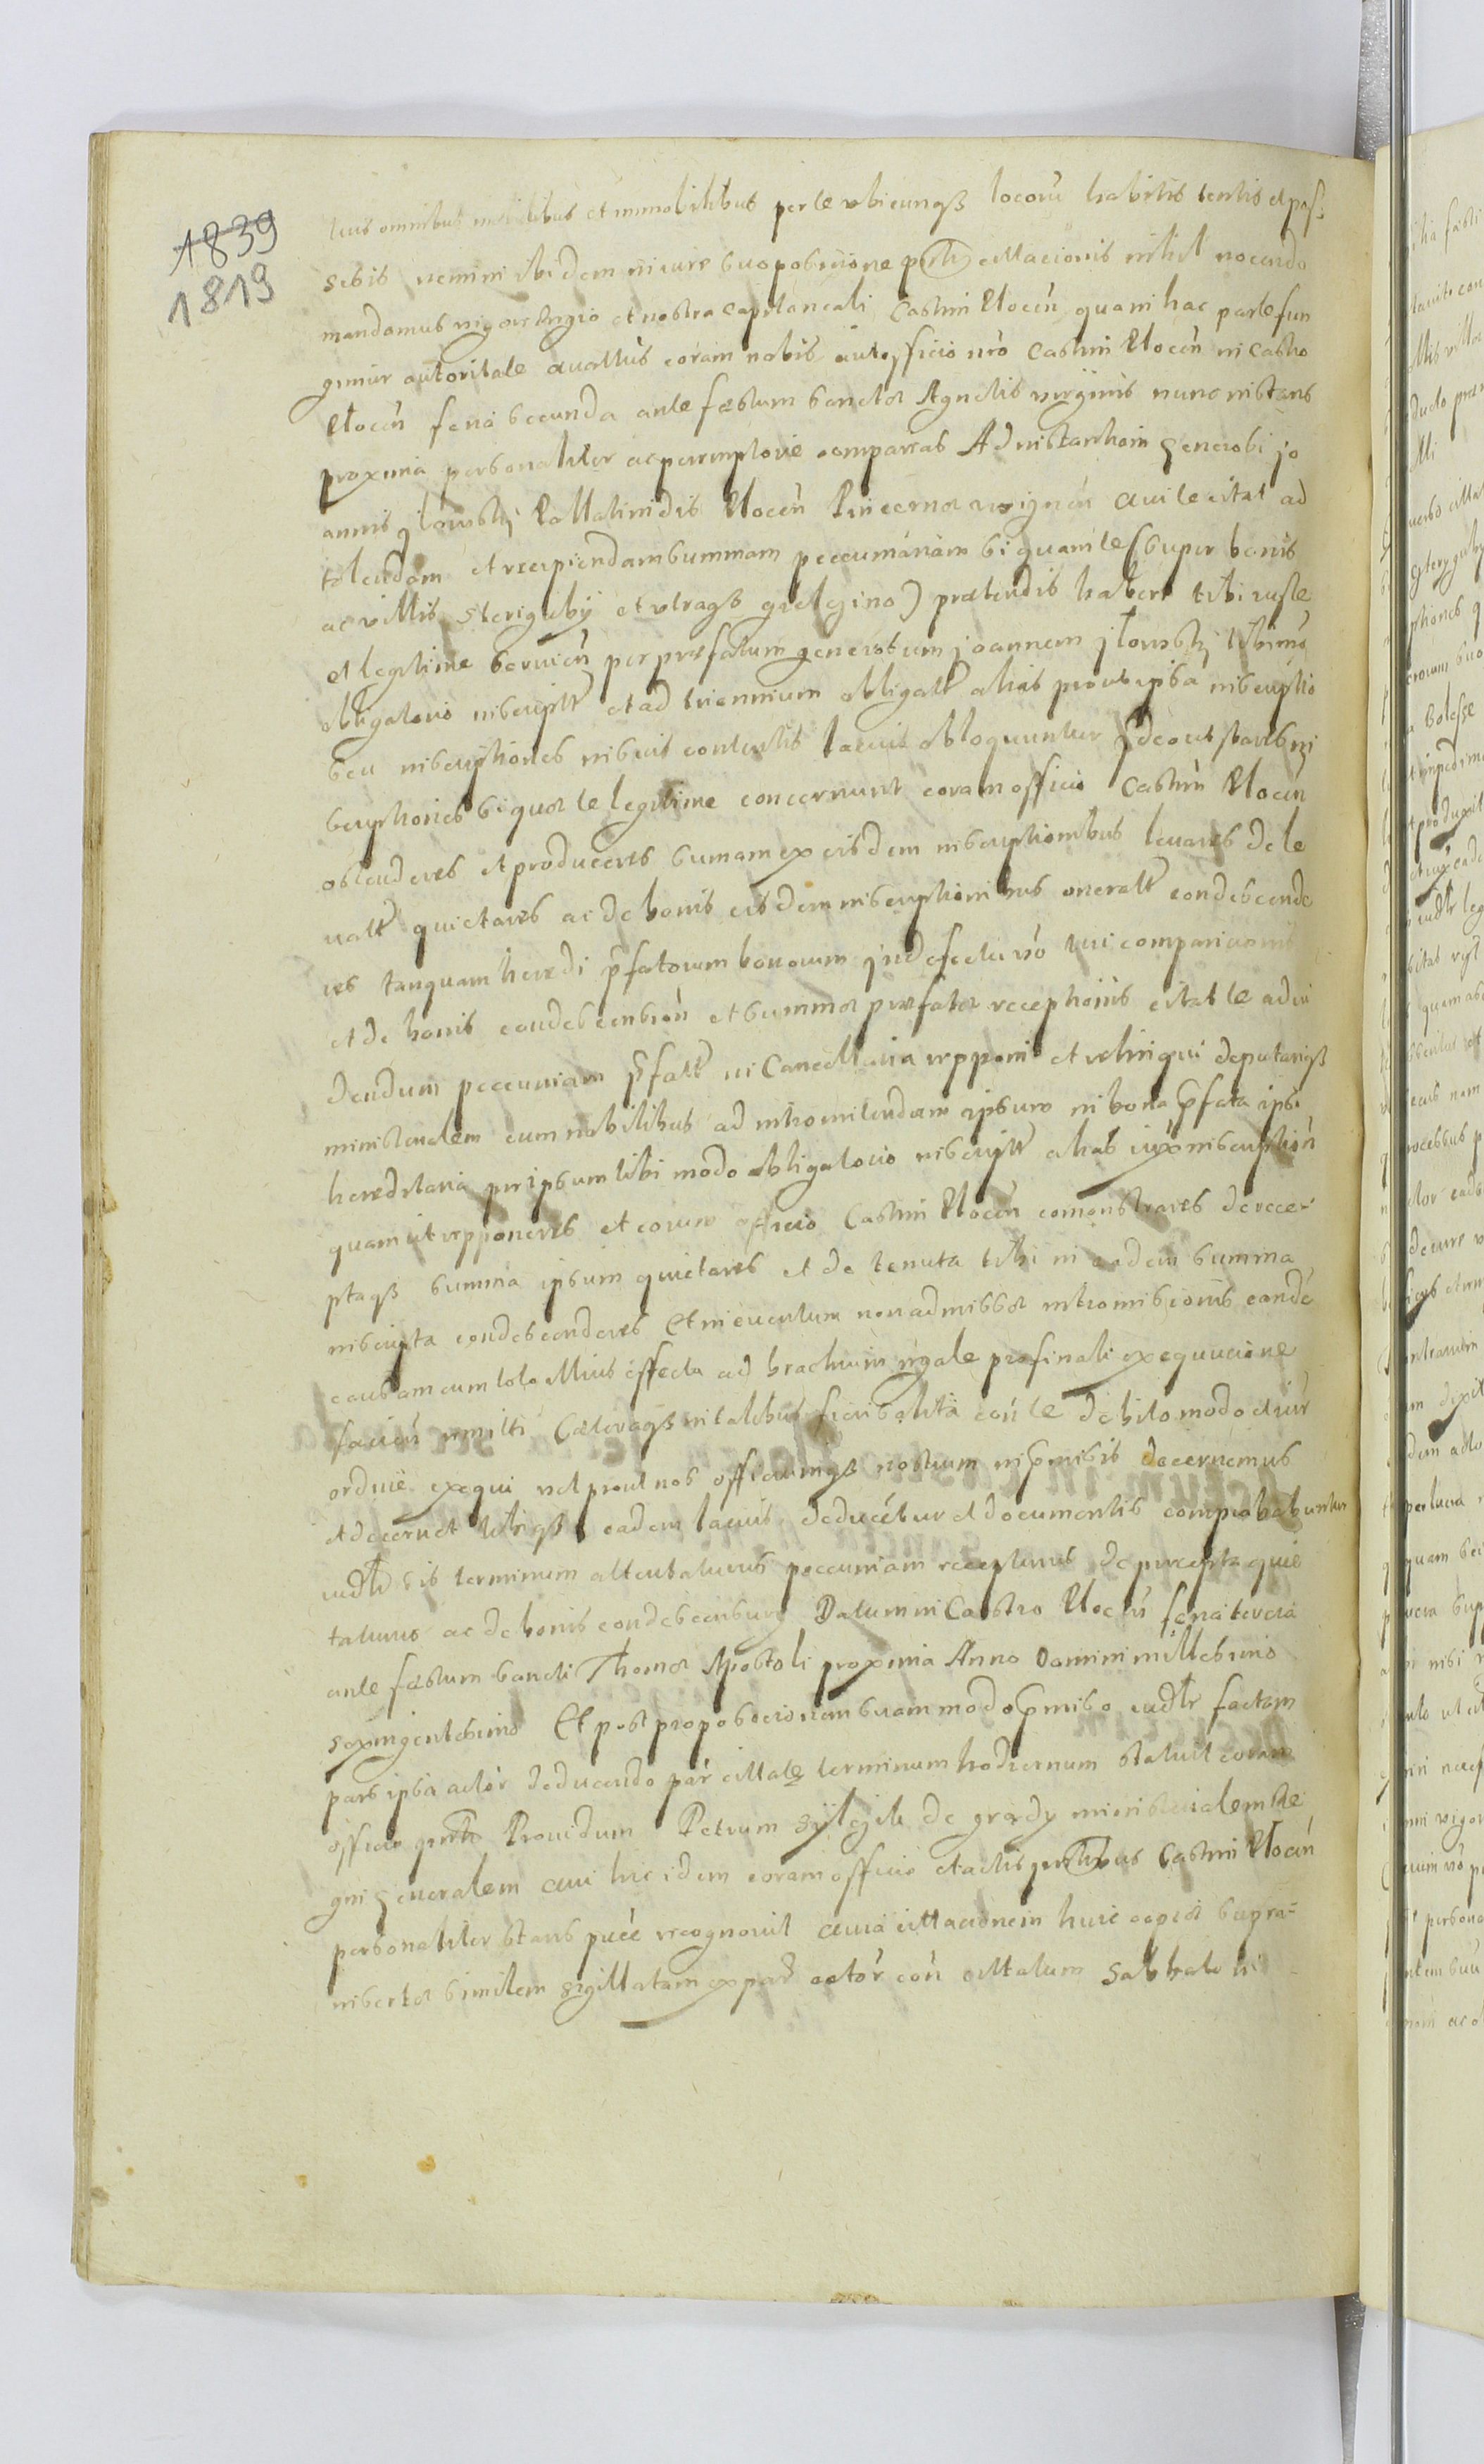 1839
1819
tuis omnibus mobilibus et immobilibus per te ubicunqȝ locorū habitis tentis et pos⸗
sebis nemini ibidem in iure suo posicione pnti cittacionis nihil nocendo
mandamus vigore Regio et nostra capitaneali Castrn̄ Plocen̄ qua in hac parte fun
gimur autoritate quattus coram nobis aut officio nr̄o Castrn̄ Plocen̄ in Castro
Plocen̄ feria secunda ante festum sanctæ Agnetis virginis nunc instans
proxima personaliter ac peremptorie compareas Ad instantiam generosi jo
annis jłowsky Pallatinidis Plocen̄ Pincernæ  qui te citat ad
tolendam et recipiendam summam peccuniariam si quam te (super bonis
ac villis  et utraqȝ ) prætendis habere tibi iuste
et legitime servien̄ per præfatum generosum joannem jłowsky tibi 
obligatorio inscript̄ et ad triennium obligat̄ alias prout ipsa inscriptio
seu inscriptiones in suis contentis latius obloquuntur Ideo ut  in
scriptiones si quæ te legitime concernunt coram officio Castrn̄ Plocen̄
ostenderes et produceres sumam ex eisdem inscriptionibus levares de le
vatt quietares ac de bonis eisdem inscriptionibus oneratt condescende
res tanquam heredi p̄fatorum bonorum In defectu v̄o tui comparicionis
et de bonis condescension̄ et summæ præfatæ receptionis citat te ad vi
dendum peccuniam p̄fatt in Cancellaria repponi et relinqui deputariqȝ
ministerialem cum nobilibus ad intromitendum ipsum in bona p̄fata ipsi
hereditaria per ipsum tibi modo obligatorio inscript̄ alias iux inscription̄
quam ut repponeres et coram officio Castrn̄ Plocen̄ comonstrares de rece⸗
ptaqȝ summa ipsum quietares et de tenuta tibi in eadem summa
inscripta condescenderes Et in eventum non admissæ intromissionis eandē
causam cum toto illius effectu ad brachium rigale pro finali exequucione
facien̄ remitti Cæteraqȝ in talibus fieri solita con̄ te debito modo et iur̄
ordine exequi vel prout nos officiumqȝ nostrum in p̄missis decernemus
et decernet  eadem latius deducetur et documentis comprobabuntur
iudtr sis terminum attentaturus peccuniam recepturus de percepta quie
taturus ac de bonis condescensurus Datum in Castro Plocen̄ feria tercia
ante festum sancti Thomæ Apostoli proxima Anno Domini millesimo
sexingentesimo Et post propositionem suam modo p̄misso iudtr factam
pars ipsa actor̄ deducendo par̄ cittatæ terminum hodiernum statuit coram
officio  Providum Petrum  de grady ministerialem Re
gni generalem qui hic idem coram officio et actis pntibus Castrn̄ Plocen̄
personaliter stans  recognovit quia cittacionem huic copiæ supra⸗
insertæ similem sigillatam ex par̄ actor̄ con̄ cittatum Sabbato in